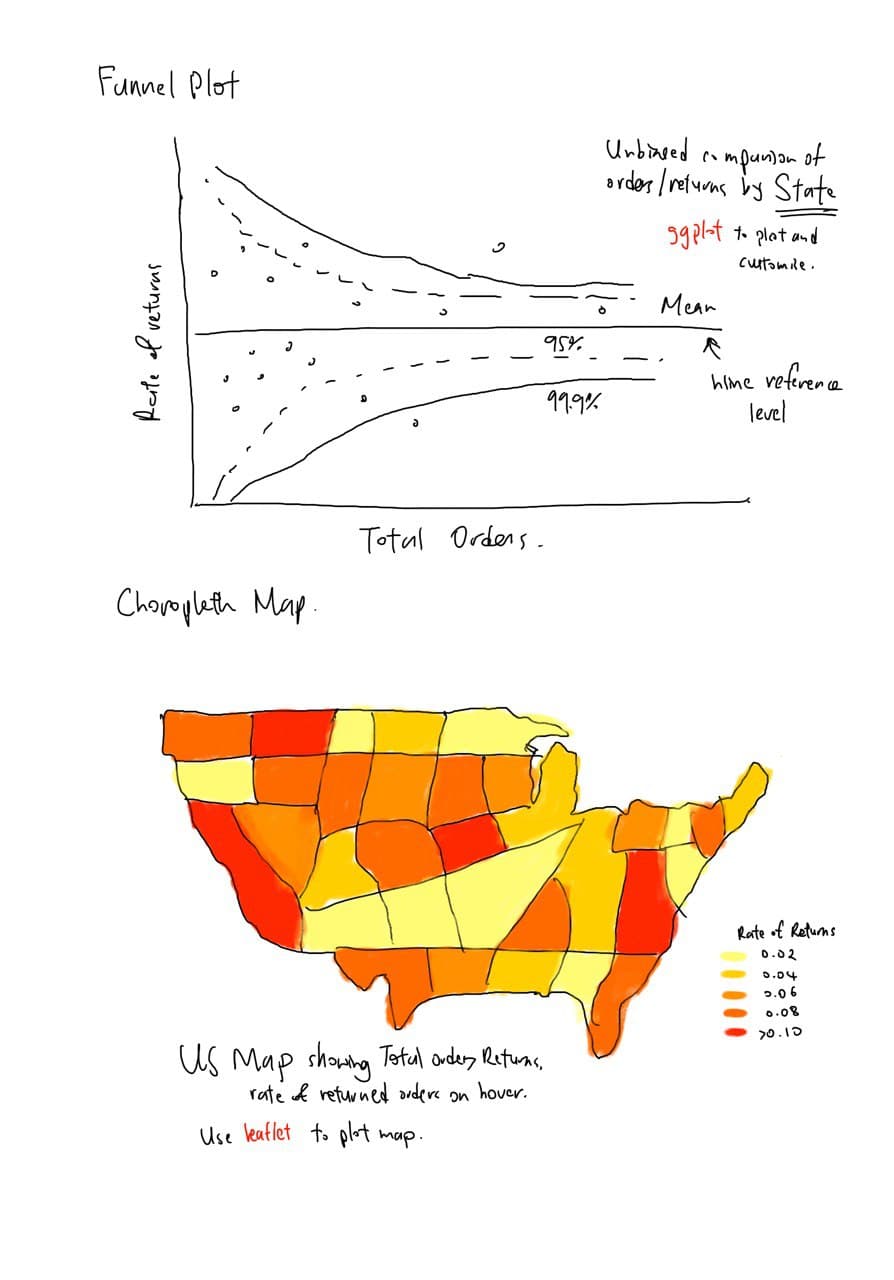 Funnel Plot
Unbiased comparison of
orders/returns by State
ggplot to plot and
customise.
Rate of returns
Mean
95%
99.9%
hline reference
level
Total Orders.
Choropleth Map.
Rate of Returns
0.02
0.04
0.06
0.08
>0.10
US Map showing Total orders, Returns,
rate of returned orders on hover.
Use leaflet to plot map.